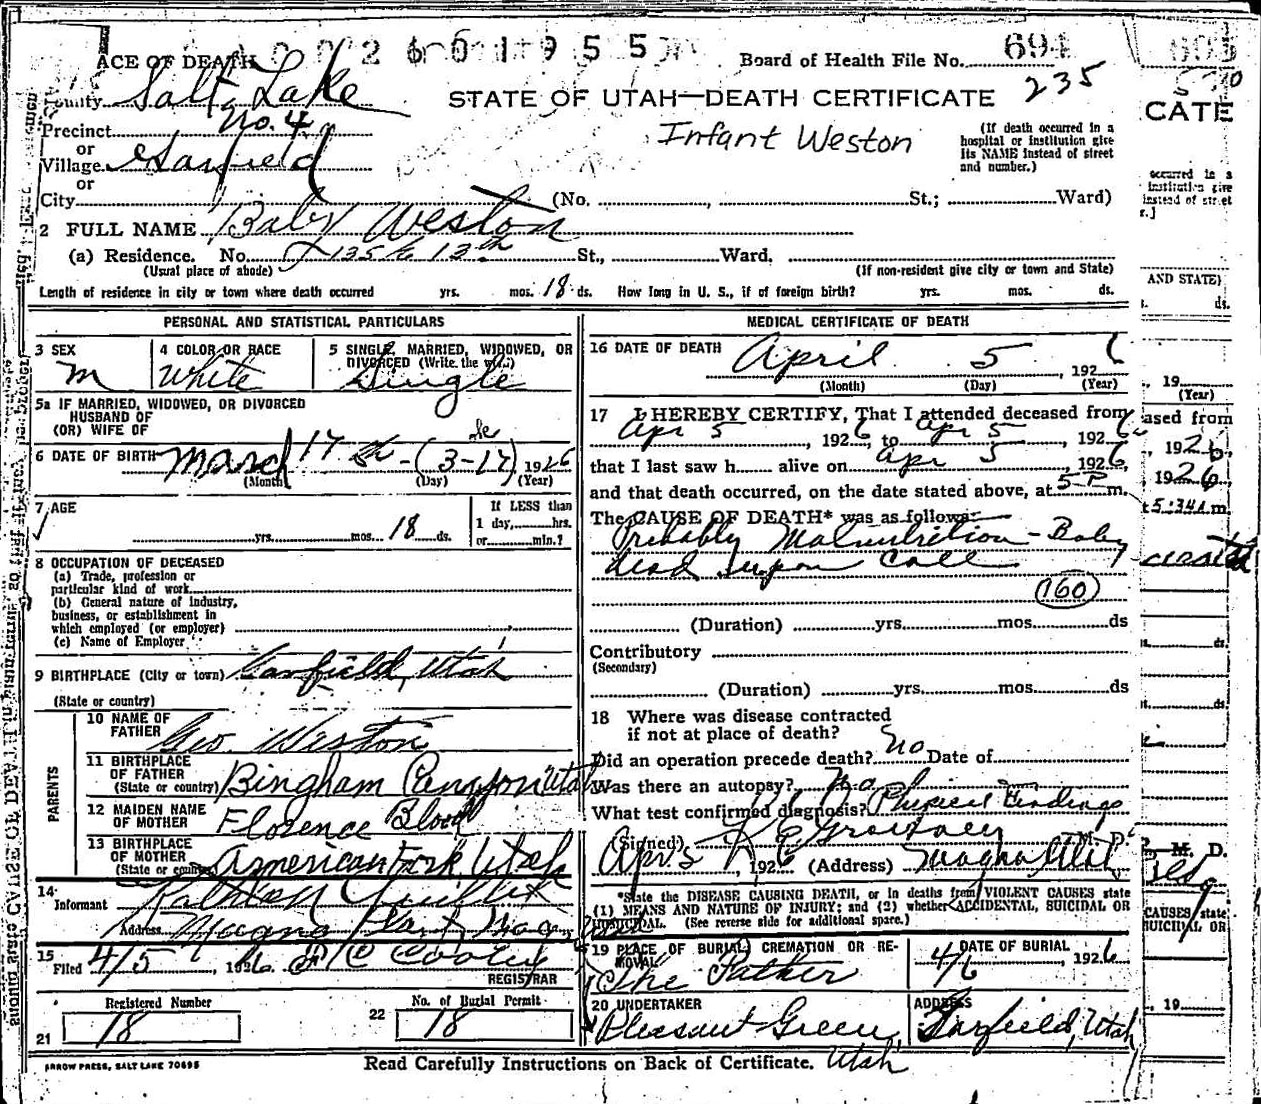 ACE OF DEATH 2601955 Board of Health File No. 694
235
County Salt Lake STATE OF UTAH—DEATH CERTIFICATE CATE
Precinct No. 4 Infant Weston (If death occurred in a
hospital or institution give
its NAME instead of street
and number.)
or
Village Garfield
or
City (No. , St.; Ward)
2 FULL NAME Baby Weston
(a) Residence. No. 135 E 13th St., Ward,
(Usual place of abode) (If non-resident give city or town and State)
Length of residence in city or town where death occurred yrs. mos. 18 ds. How long in U. S., if of foreign birth? yrs. mos. ds.
PERSONAL AND STATISTICAL PARTICULARS
3 SEX 4 COLOR OR RACE 5 SINGLE, MARRIED, WIDOWED, OR
DIVORCED (Write the word)
m White Single
5a IF MARRIED, WIDOWED, OR DIVORCED
HUSBAND OF
(OR) WIFE OF
6 DATE OF BIRTH March 17th - (3-17) 1926
(Month) (Day) (Year)
7 AGE If LESS than
1 day, hrs.
yrs. mos. 18 ds. or min.?
8 OCCUPATION OF DECEASED
(a) Trade, profession or
particular kind of work
(b) General nature of industry,
business, or establishment in
which employed (or employer)
(c) Name of Employer
9 BIRTHPLACE (City or town) Garfield, Utah
(State or country)
PARENTS
10 NAME OF
FATHER Geo. Weston
11 BIRTHPLACE
OF FATHER
(State or country) Bingham Canyon Utah
12 MAIDEN NAME
OF MOTHER Florence Blood
13 BIRTHPLACE
OF MOTHER
(State or country) American Fork Utah
14
Informant
Address Magna Plant Magna
15
Filed 4/5, 1926 Cooley
REGISTRAR
Registered Number No. of Burial Permit
21 18 22 18
MEDICAL CERTIFICATE OF DEATH
16 DATE OF DEATH April 5, 1926
(Month) (Day) (Year)
17 I HEREBY CERTIFY, That I attended deceased from
Apr 5, 1926, to Apr 5, 1926
that I last saw h alive on Apr 5, 1926,
and that death occurred, on the date stated above, at 5 P m.
The CAUSE OF DEATH* was as follows:
Probably Malnutrition - Baby
dead upon call
160
(Duration) yrs. mos. ds
Contributory
(Secondary)
(Duration) yrs. mos. ds
18 Where was disease contracted
if not at place of death?
Did an operation precede death? No Date of
Was there an autopsy? No
What test confirmed diagnosis? Physical Findings
(Signed) M. D.
Apr 5, 1926 (Address) Magna Utah
*State the DISEASE CAUSING DEATH, or in deaths from VIOLENT CAUSES state
(1) MEANS AND NATURE OF INJURY; and (2) whether ACCIDENTAL, SUICIDAL OR
HOMICIDAL. (See reverse side for additional space.)
19 PLACE OF BURIAL, CREMATION OR RE- DATE OF BURIAL
MOVAL
The Father 4/6, 1926
20 UNDERTAKER ADDRESS
Pleasant Green, Garfield, Utah
Utah
ARROW PRESS, SALT LAKE 70695 Read Carefully Instructions on Back of Certificate.
occurred in a
institution give
instead of street
AND STATE)
ds.
, 19
(Year)
ased from
, 1926
1926
5:34 a m.
ds.
ds.
M. D.
Bldg
CAUSES state
SUICIDAL OR
, 19